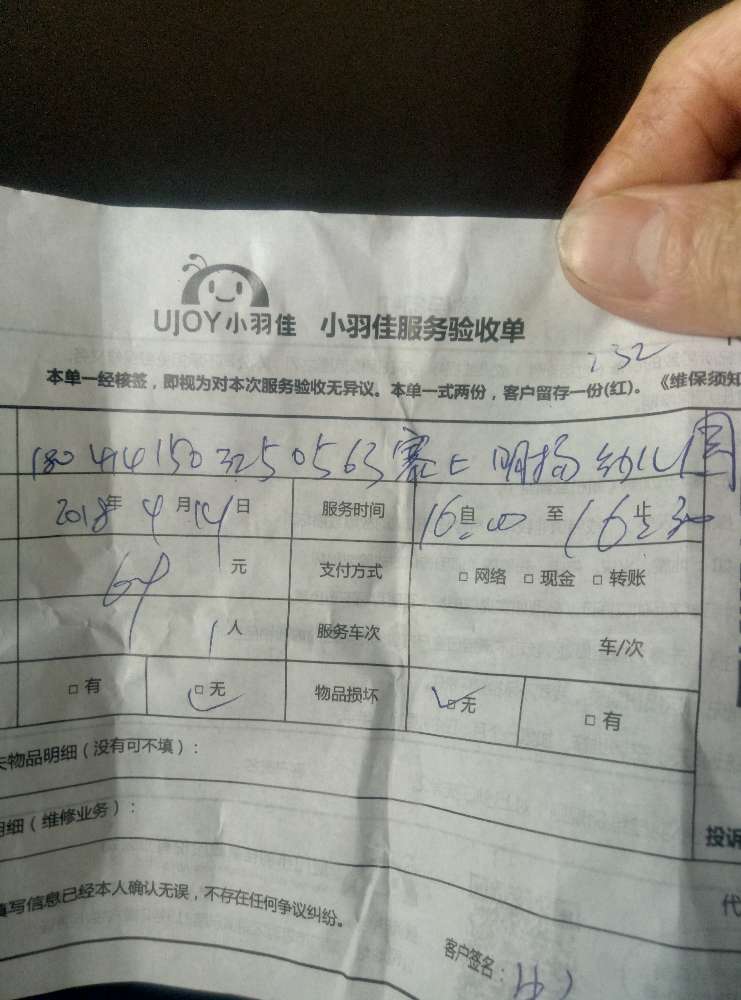 UJOY小羽佳 小羽佳服务验收单
232
本单一经核签，即视为对本次服务验收无异议。本单一式两份，客户留存一份(红)。《维保须知
1804141503250563寨上明扬幼儿园
2018年4月14日 服务时间 16自:00至16止:30
69元 支付方式 □网络 □现金 □转账
1人 服务车次 车/次
□有 □无 物品损坏 □无 □有
物品明细（没有可不填）：
细（维修业务）：
投诉
填写信息已经本人确认无误，不存在任何争议纠纷。
代
客户签名：